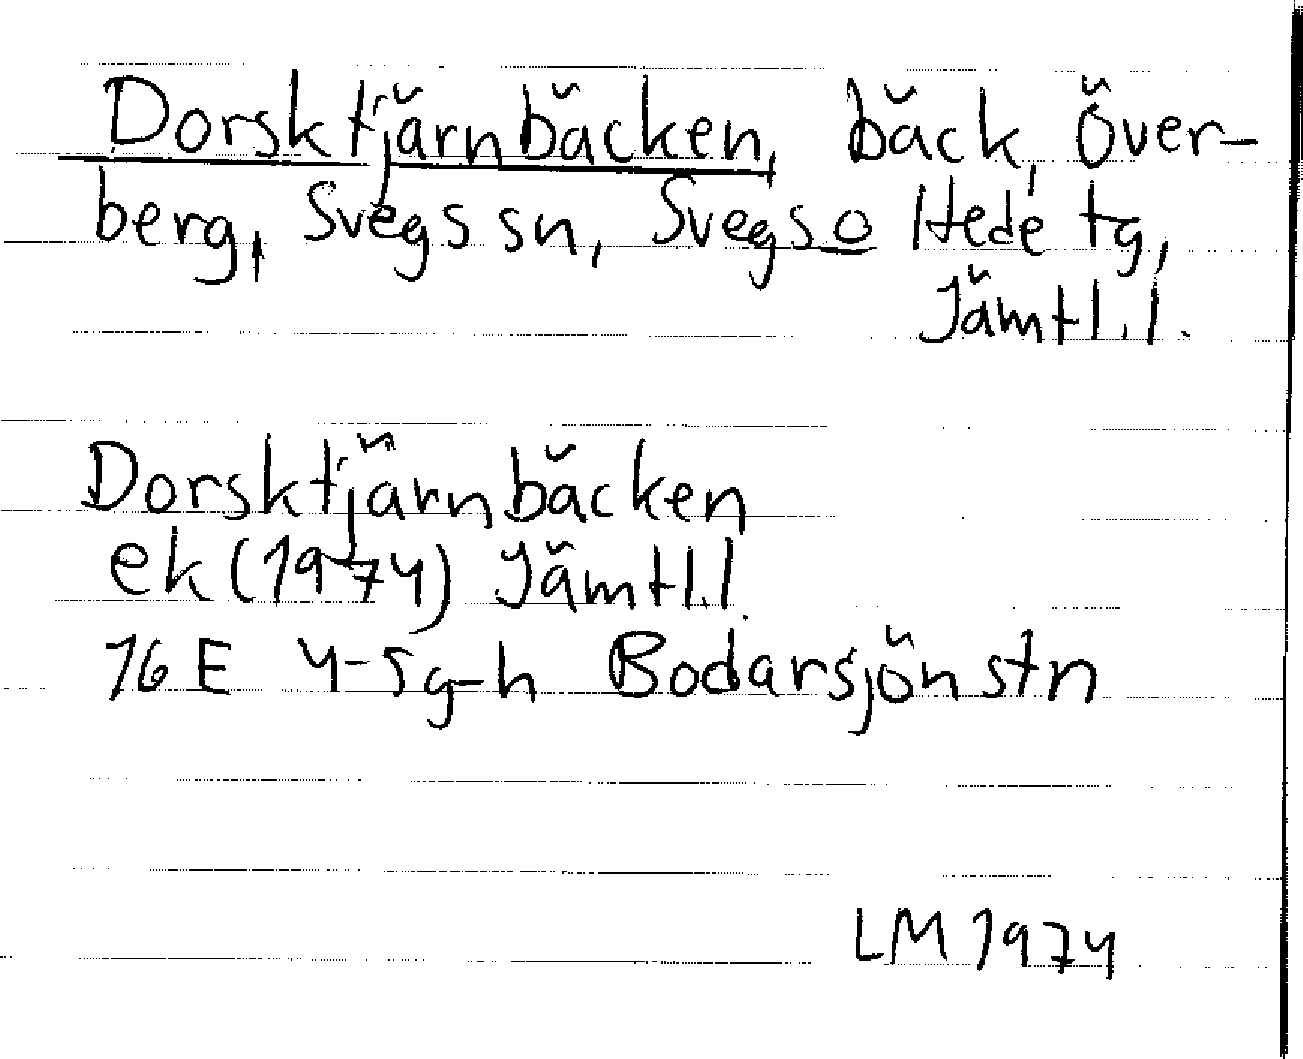 Dorsktjärnbäcken, bäck, Över-
berg, Svegs sn, Svegs o Hede tg,
Jämtl.l.
Dorsktjärnbäcken
ek (1974) Jämtl.l.
16 E 4-5 g-h Bodarsjön stn
LM 1974